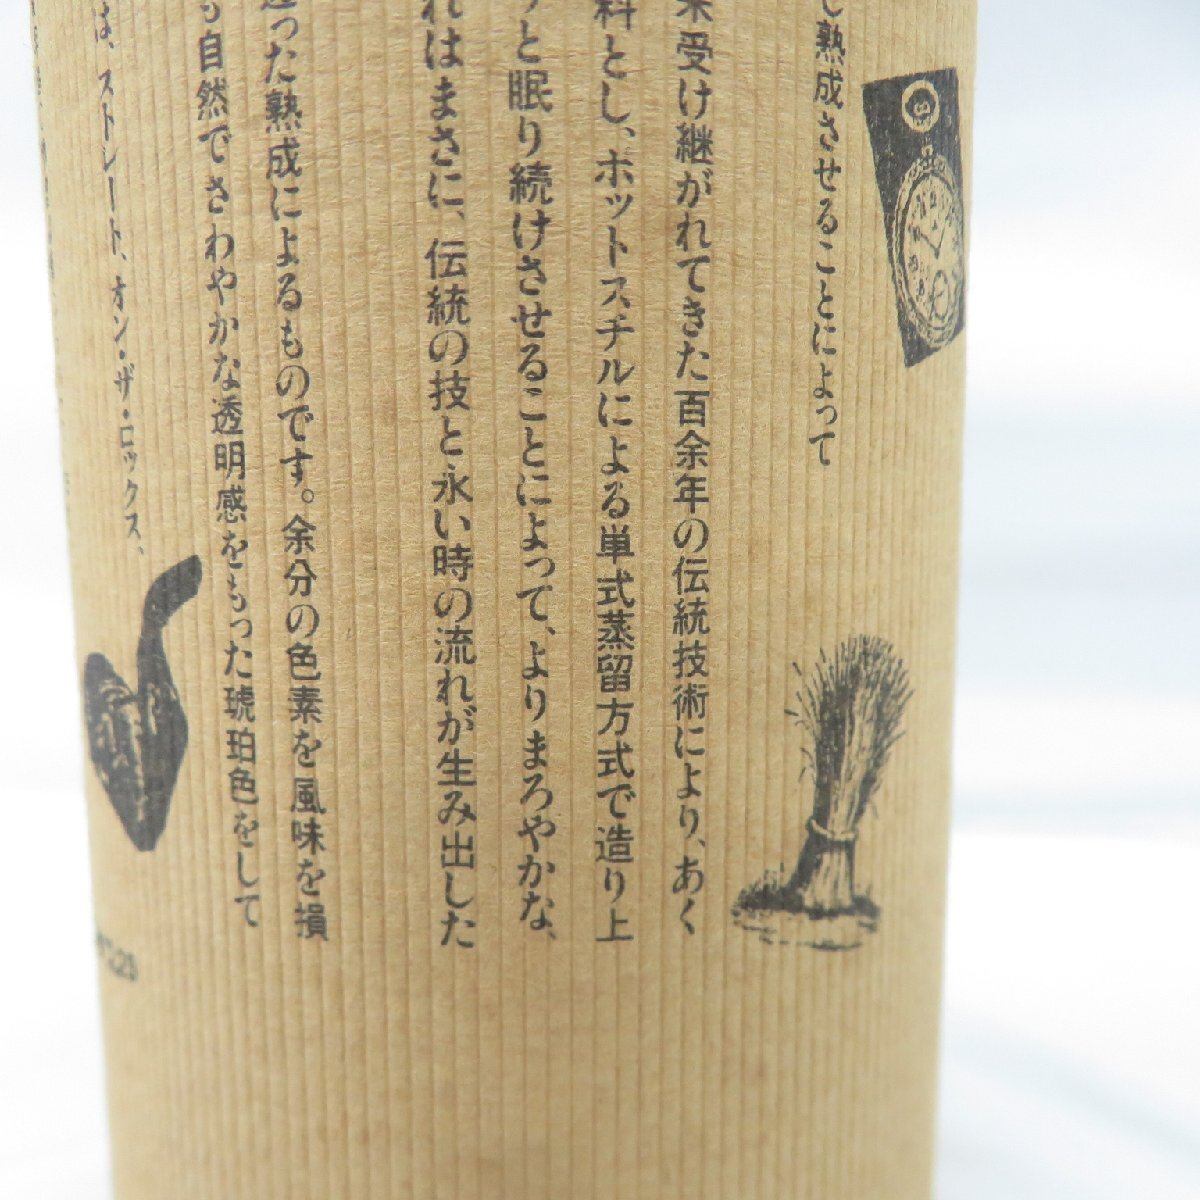 し熟成させることによって
来受け継がれてきた百余年の伝統技術により、あく
料とし、ホットスチルによる単式蒸留方式で造り上
りと眠り続けさせることによって、よりまろやかな、
れはまさに、伝統の技と永い時の流れが生み出した
った熟成によるものです。余分の色素を風味を損
も自然でさわやかな透明感をもった琥珀色をして
は、ストレート、オン・ザ・ロックス、